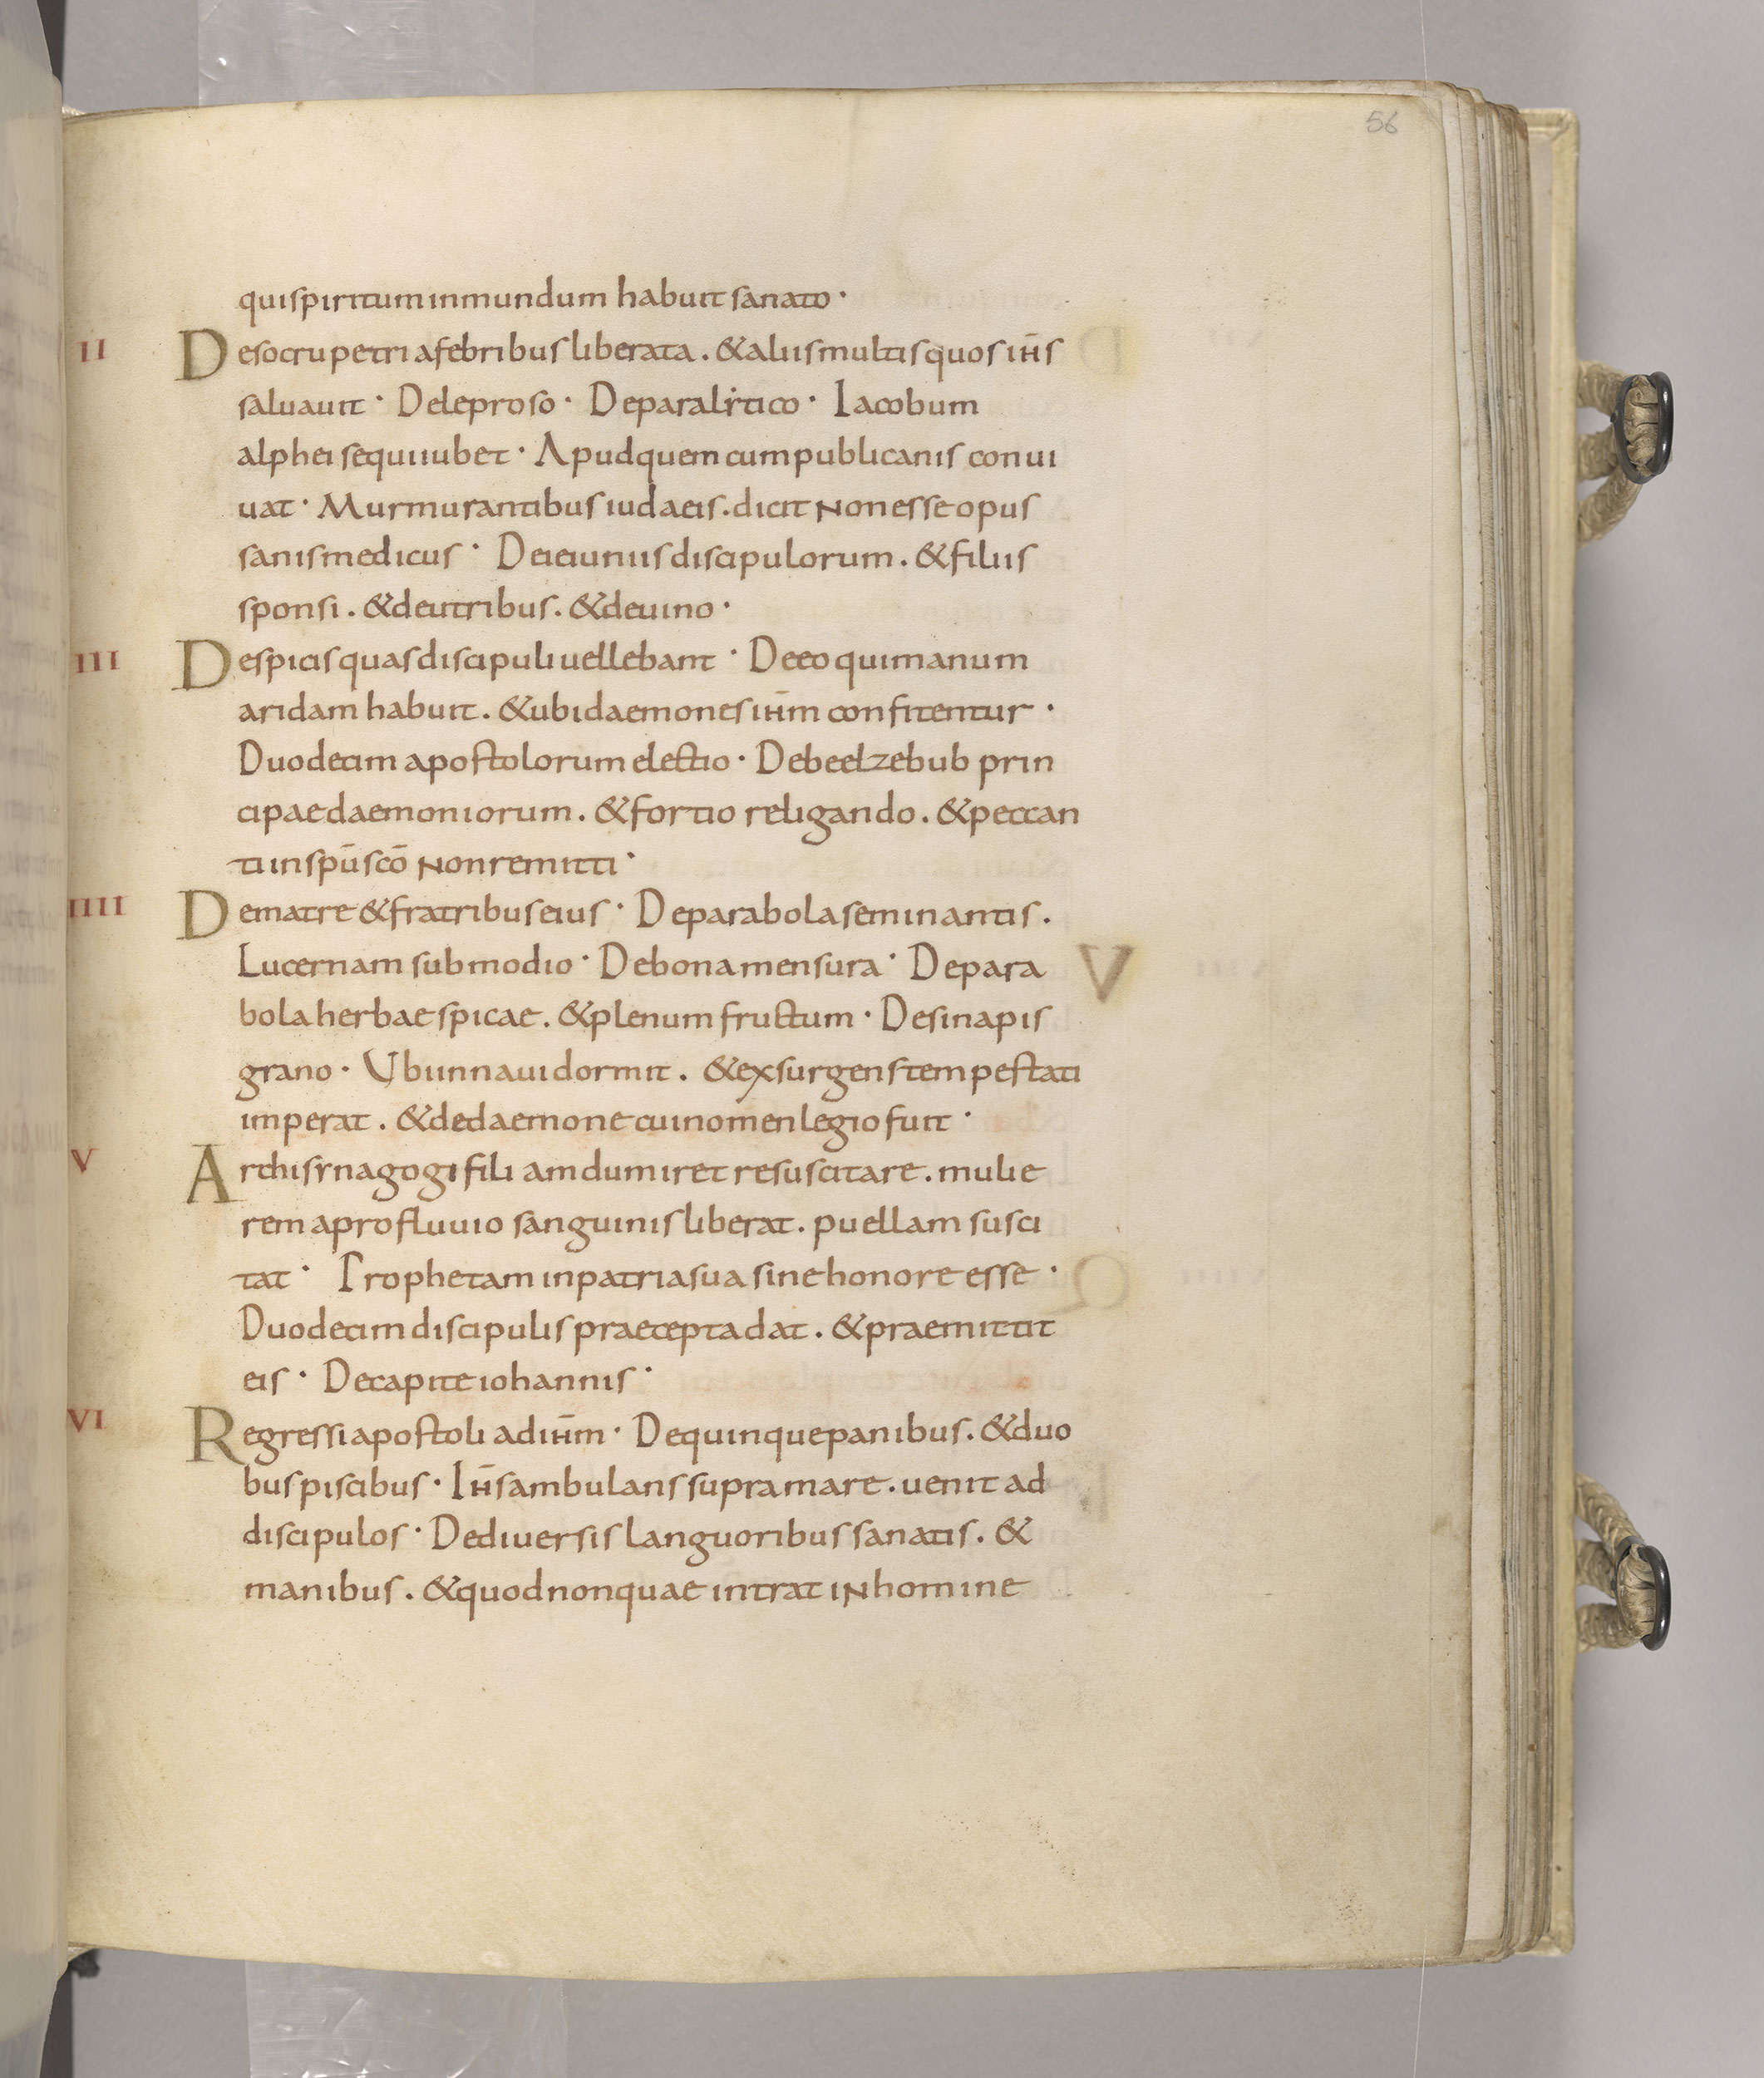 56
qui spiritum inmundum habuit sanato·
II De socru petri a febribus liberata. & aliis multis quos ih̅s
saluauit· De leproso· De paralytico· Iacobum
alphei sequi iubet· Apud quem cum publicanis conui
uat· Murmurantibus iudaeis. dicit non esse opus
sanis medicus· De ieiuniis discipulorum. & filiis
sponsi. & de utribus. & de uino·
III De spicis quas discipuli uellebant· De eo qui manum
aridam habuit. & ubi daemones ih̅m confitentur·
Duodecim apostolorum electio· De beelzebub prin
cipae daemoniorum. & fortio religando. & peccan
ti in sp̅u sc̅o non remitti·
IIII De matre & fratribus eius· De parabola seminantis.
Lucernam sub modio· De bona mensura· De para
bola herbae spicae. & plenum fructum· De sinapis
grano· Ubi in naui dormit. & exsurgens tempestati
imperat. & de daemone cui nomen legio fuit·
V Archisynagogi filiam dum iret resuscitare. mulie
rem a profluuio sanguinis liberat. puellam susci
tat· Prophetam in patria sua sine honore esse·
Duodecim discipulis praecepta dat. & praemittit
eis· De capite iohannis·
VI Regressi apostoli ad ih̅m· De quinque panibus. & duo
bus piscibus· Ih̅s ambulans supra mare. uenit ad
discipulos· De diuersis languoribus sanatis. &
manibus. & quod non quae intrat in homine